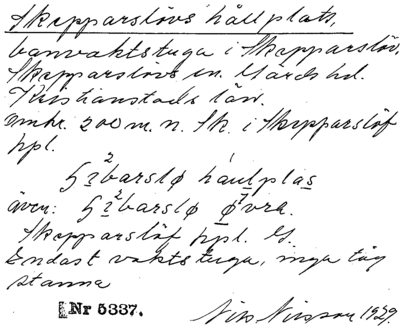 Skepparslövs hållplats,
banvaktstuga i Skepparslöv,
Skepparslövs sn. Gärds hd.
Kristianstads län.
omkr. 200 m. n. Sk. i Skepparslöf
hpl.
även:
Skepparslöf hpl. G.
Endast vaktstuga, inga tåg
stanna
Nr 5337.
Nils Nilsson 1929.